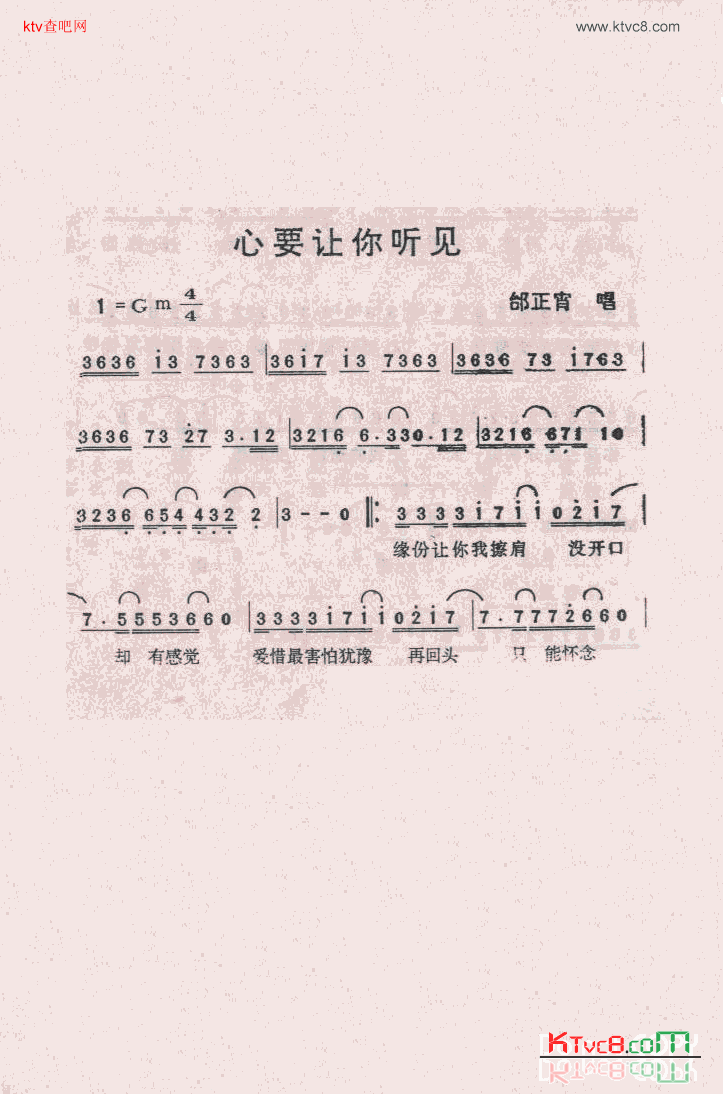 ktv查吧网
www.ktvc8.com
心要让你听见
1 = G m 4/4
邰正宵 唱
3636 i3 7363 | 36i7 i3 7363 | 3636 73 i763 |
3636 73 2̇7 3.12 | 3216 6.330.12 | 3216 671 16 |
3236 654 432 2 | 3--0 ‖: 3333i7ii02̇i7 |
缘份让你我擦肩 没开口
7.55536660 | 3333i7ii02̇i7 | 7.7772̇660 |
却 有感觉 爱惜最害怕犹豫 再回头 只 能怀念
KTvc8.com